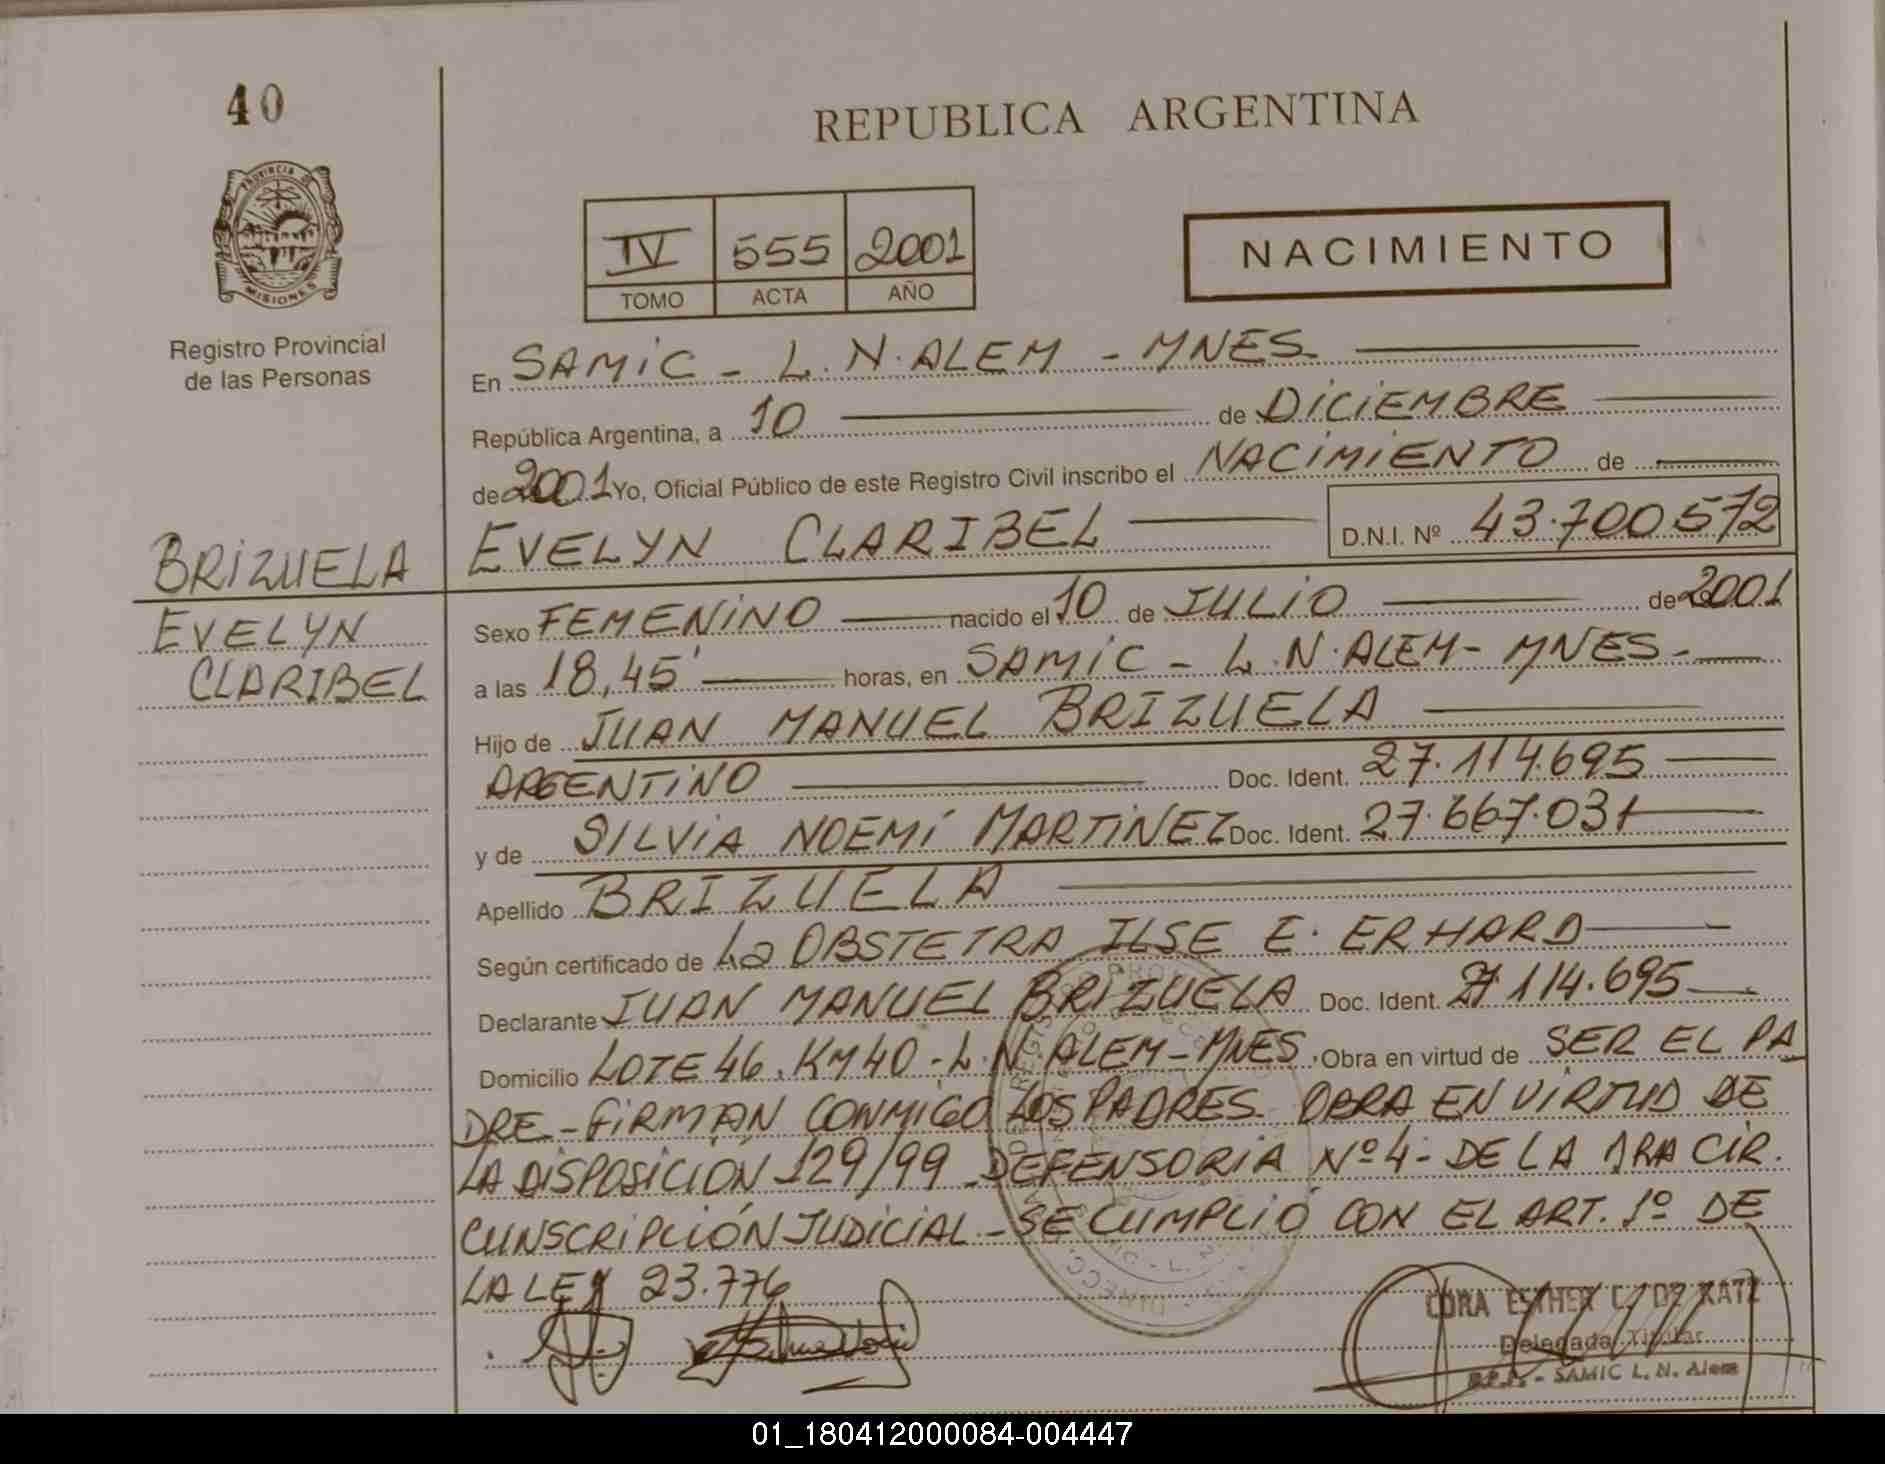 40
REPUBLICA ARGENTINA
PROVINCIA DE
MISIONES
Registro Provincial
de las Personas
IV 555 2001
TOMO ACTA AÑO
NACIMIENTO
En SAMIC - L.N. ALEM - MNES
República Argentina, a 10 de DICIEMBRE
de 2001 Yo, Oficial Público de este Registro Civil inscribo el NACIMIENTO de
BRIZUELA
EVELYN CLARIBEL D.N.I. Nº 43.700.572
EVELYN
CLARIBEL
Sexo FEMENINO nacido el 10 de JULIO de 2001
a las 18,45' horas, en SAMIC - L.N. ALEM - MNES -
Hijo de JUAN MANUEL BRIZUELA
ARGENTINO Doc. Ident. 27.114.695
y de SILVIA NOEMÍ MARTINEZ Doc. Ident. 27.667.031
Apellido BRIZUELA
Según certificado de La OBSTETRA ILSE E. ERHARD
Declarante JUAN MANUEL BRIZUELA Doc. Ident. 27.114.695
Domicilio LOTE 46. KM 40 - L.N. ALEM - MNES. Obra en virtud de SER EL PA
DRE - FIRMAN CONMIGO LOS PADRES. OBRA EN VIRTUD DE
LA DISPOSICIÓN 129/99 - DEFENSORIA Nº 4 - DE LA 1RA CIR.
CUNSCRIPCIÓN JUDICIAL - SE CUMPLIÓ CON EL ART. 1º DE
LA LEY 23.776
CORA ESTHER C. DE KATZ
Delegada Titular
SAMIC L. N. Alem
01_180412000084-004447